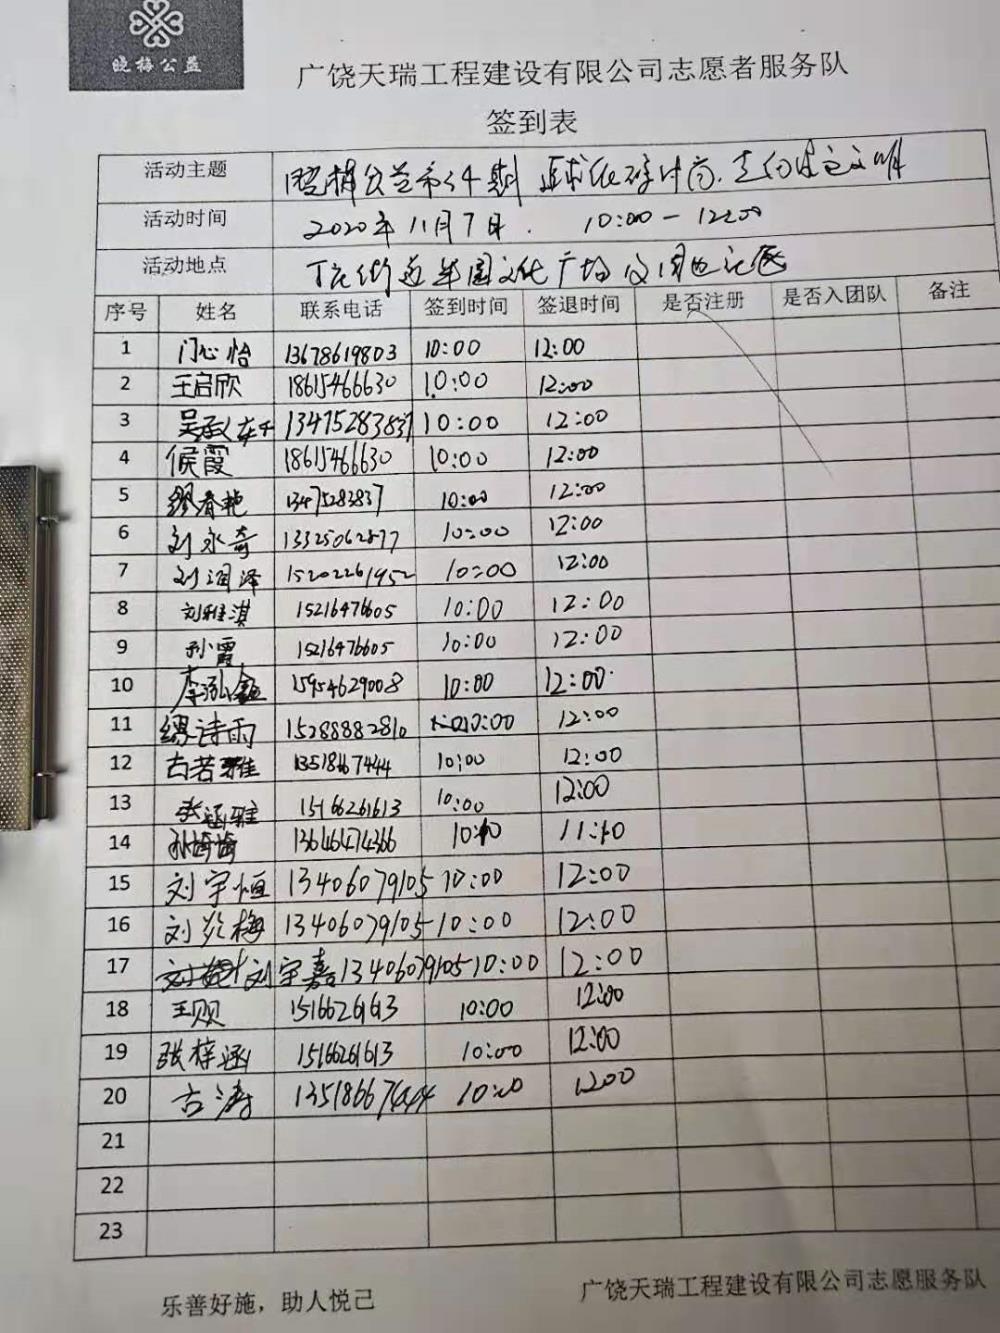 晓梅公益
广饶天瑞工程建设有限公司志愿者服务队
签到表
活动主题 公益第34期
活动时间 2020年11月7日. 10:00-12:00
活动地点 文化广场及周边
序号 姓名 联系电话 签到时间 签退时间 是否注册 是否入团队 备注
1 门心怡 13678619803 10:00 12:00
2 王启欣 18615466630 10:00 12:00
3 吴 13475283837 10:00 12:00
4 侯霞 18615466630 10:00 12:00
5 缪春艳 13475283837 10:00 12:00
6 刘永奇 13325062877 10:00 12:00
7 刘润泽 15202261952 10:00 12:00
8 刘雅淇 15216476605 10:00 12:00
9 孙霞 15216476605 10:00 12:00
10 李泓鑫 15954629008 10:00 12:00
11 缪诗雨 15288882810 10:00 12:00
12 古若雅 13518667444 10:00 12:00
13 张涵雅 15166261613 10:00 12:00
14 孙梅梅 13646474366 10:10 11:10
15 刘宇恒 13406079105 10:00 12:00
16 刘炎梅 13406079105 10:00 12:00
17 刘宇嘉 13406079105 10:00 12:00
18 王贝 15166261613 10:00 12:00
19 张梓涵 15166261613 10:00 12:00
20 古涛 13518667444 10:00 1200
21
22
23
乐善好施，助人悦己
广饶天瑞工程建设有限公司志愿服务队